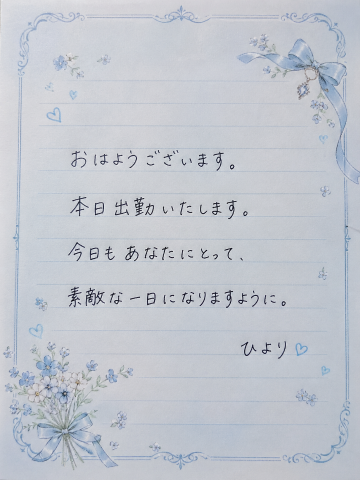 おはようございます。
本日出勤いたします。
今日もあなたにとって、
素敵な一日になりますように。
ひより♡